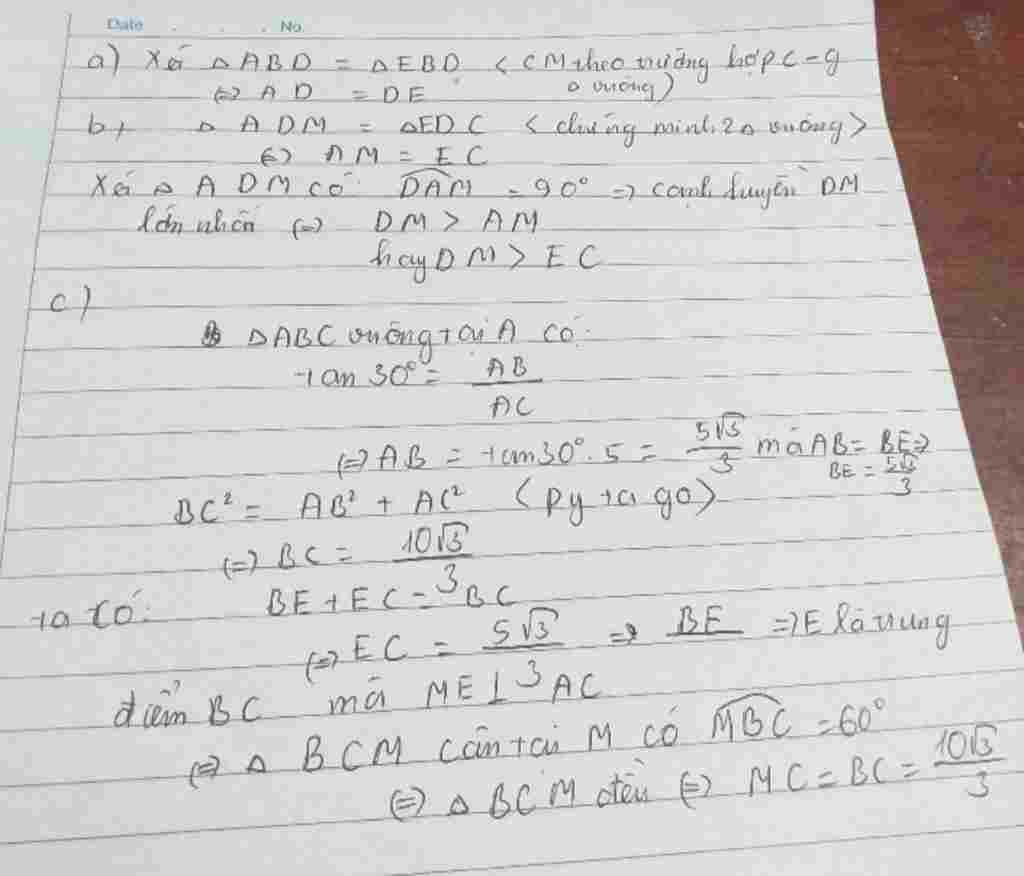 Date No.
a) Xét △ABD = △EBD < CM theo trường hợp C-g
⇔ AD = DE △ vuông)
b, △ ADM = △EDC < chứng minh 2△ vuông >
⇔ AM = EC
Xét △ ADM có \widehat{DAM} = 90° ⇒ cạnh huyền DM
lớn nhất ⇔ DM > AM
hay DM > EC
c)
△ABC vuông tại A có:
tan 30° = \frac{AB}{AC}
⇔ AB = tan30°.5 = \frac{5√3}{3} mà AB = BE ⇒
BE = \frac{5√3}{3}
BC² = AB² + AC² < py ta go >
⇔ BC = \frac{10√3}{3}
ta có: BE + EC = BC
⇔ EC = \frac{5√3}{3} ⇒ BE ⇒ E là trung
điểm BC mà ME ⊥ AC
⇔ △ BCM cân tại M có \widehat{MBC} = 60°
⇔ △ BCM đều ⇔ MC = BC = \frac{10√3}{3}